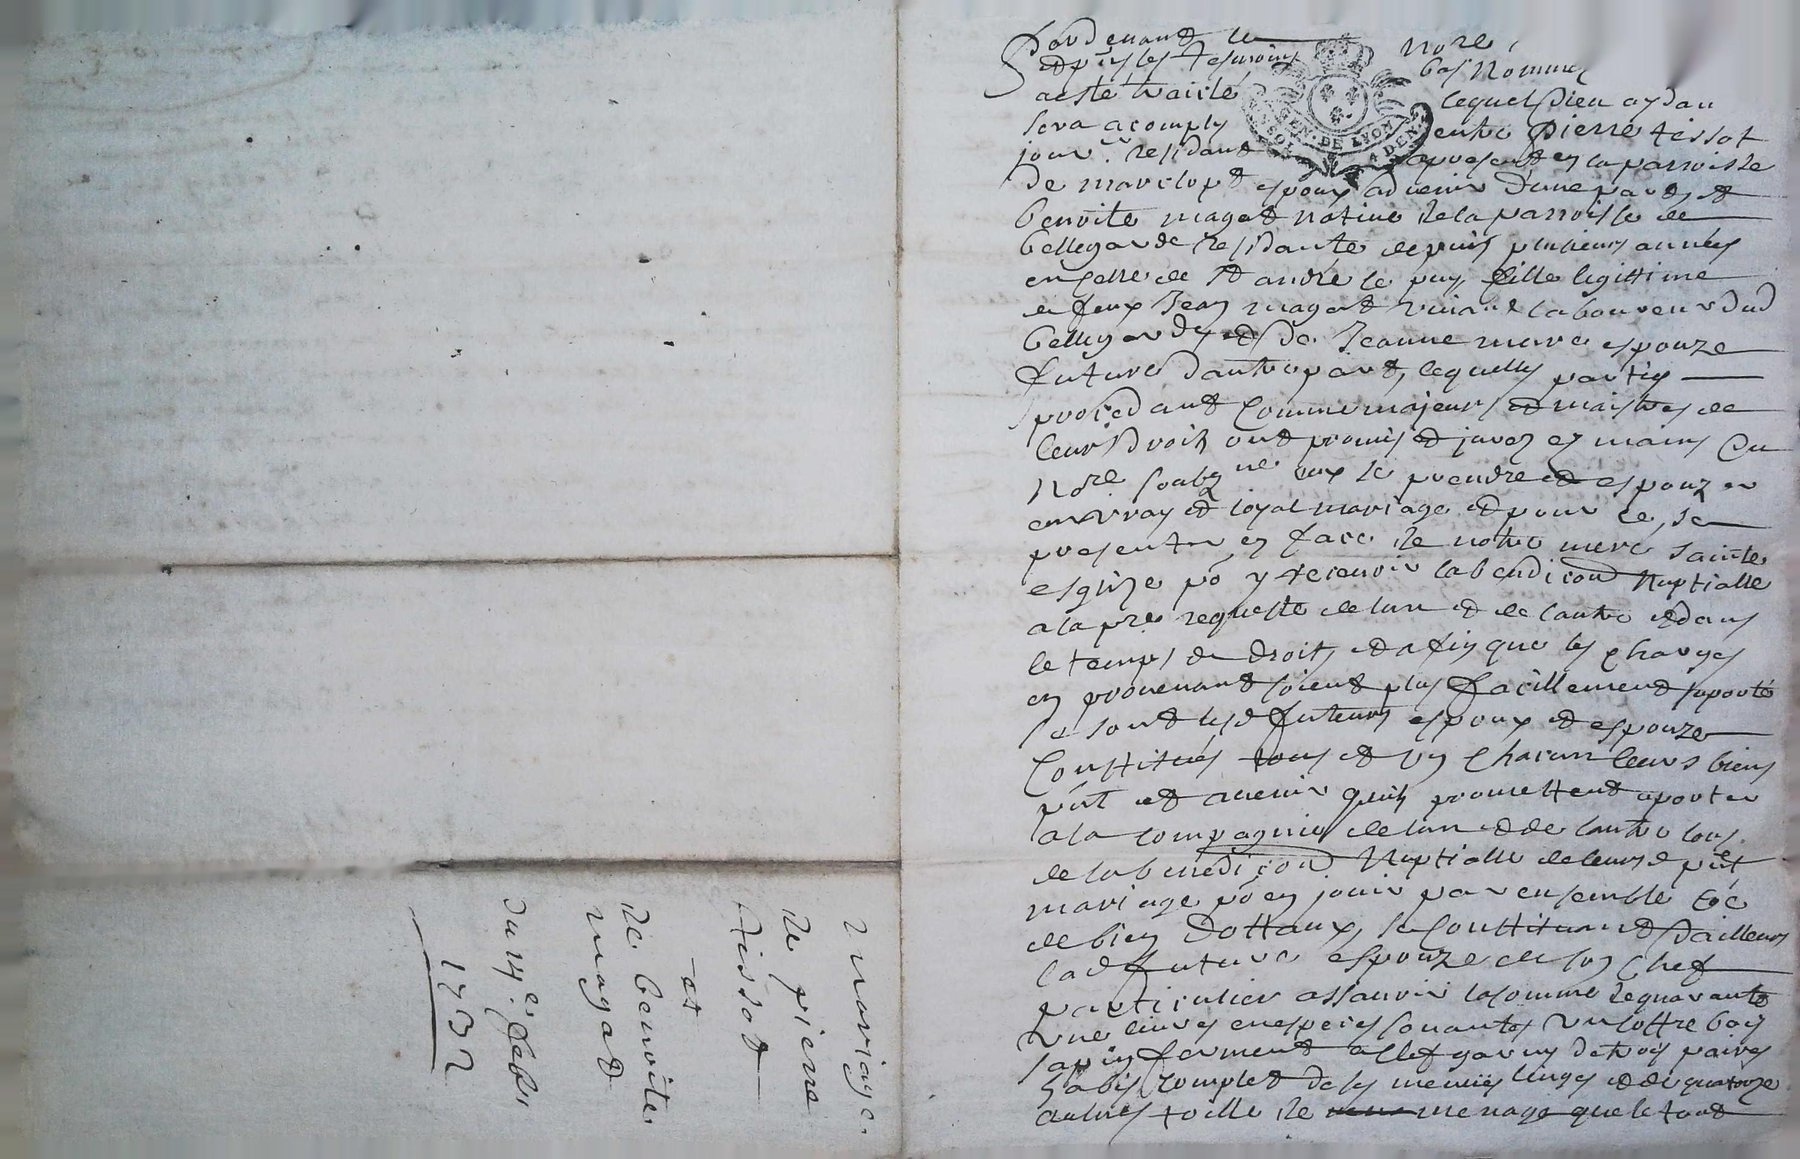 mariage
de pierre
tissot
et
de benoite
magat
du 14e. febr
1732
Pardevant le nore
et p̃ns les tesmoins bas nommé
a esté traicté lequel Dieu aydan
sera acomply entre pierre tissot
jour.r residant a present en la parroisse
de marclopt espoux advenir d'une part, et
benoite magat native de la parroisse de
bellegarde residante depuis plusieurs années
en celle de St andré le puy, fille legittime
a feux Jean magat vivant laboureur dud
bellegarde, et de Jeanne mure espouze
future d'autre part, lequelles parties
procedant comme majeurs et maistres de
leurs droits ont promis et jurez es mains du
Nore soubzne eux se prendre et espouzer
en vray et loyal mariage et pour ce, se
presenter en face de notre mere sainte
esglize pō y recevoir la bendicōn nuptialle
a la pre requeste de lun et de lautre et dans
le temps de droit, et afin que les charges
en provenant soient plus facillement suporté
se sont lesd futeurs espoux et espouze
constitués tous et un chacun leurs biens
pñt et avenir quils promettent aporter
a la compagnie de lun et de lautre lors
de la benedicōn nuptialle de leurd pñt
mariage pō en jouir par ensemble
de bien dottaux, se constituant d'ailleurs
lad future espouze de son chef
particulier assavoir la somme de quarante
une livres en especes sonantes un coffre bois
sapin fermant a clef garny de trois paires
habis complet de ses menües linges et de quatorze
aulnes toille de menage que le tout
GEN. DE LYON
4 DEN.